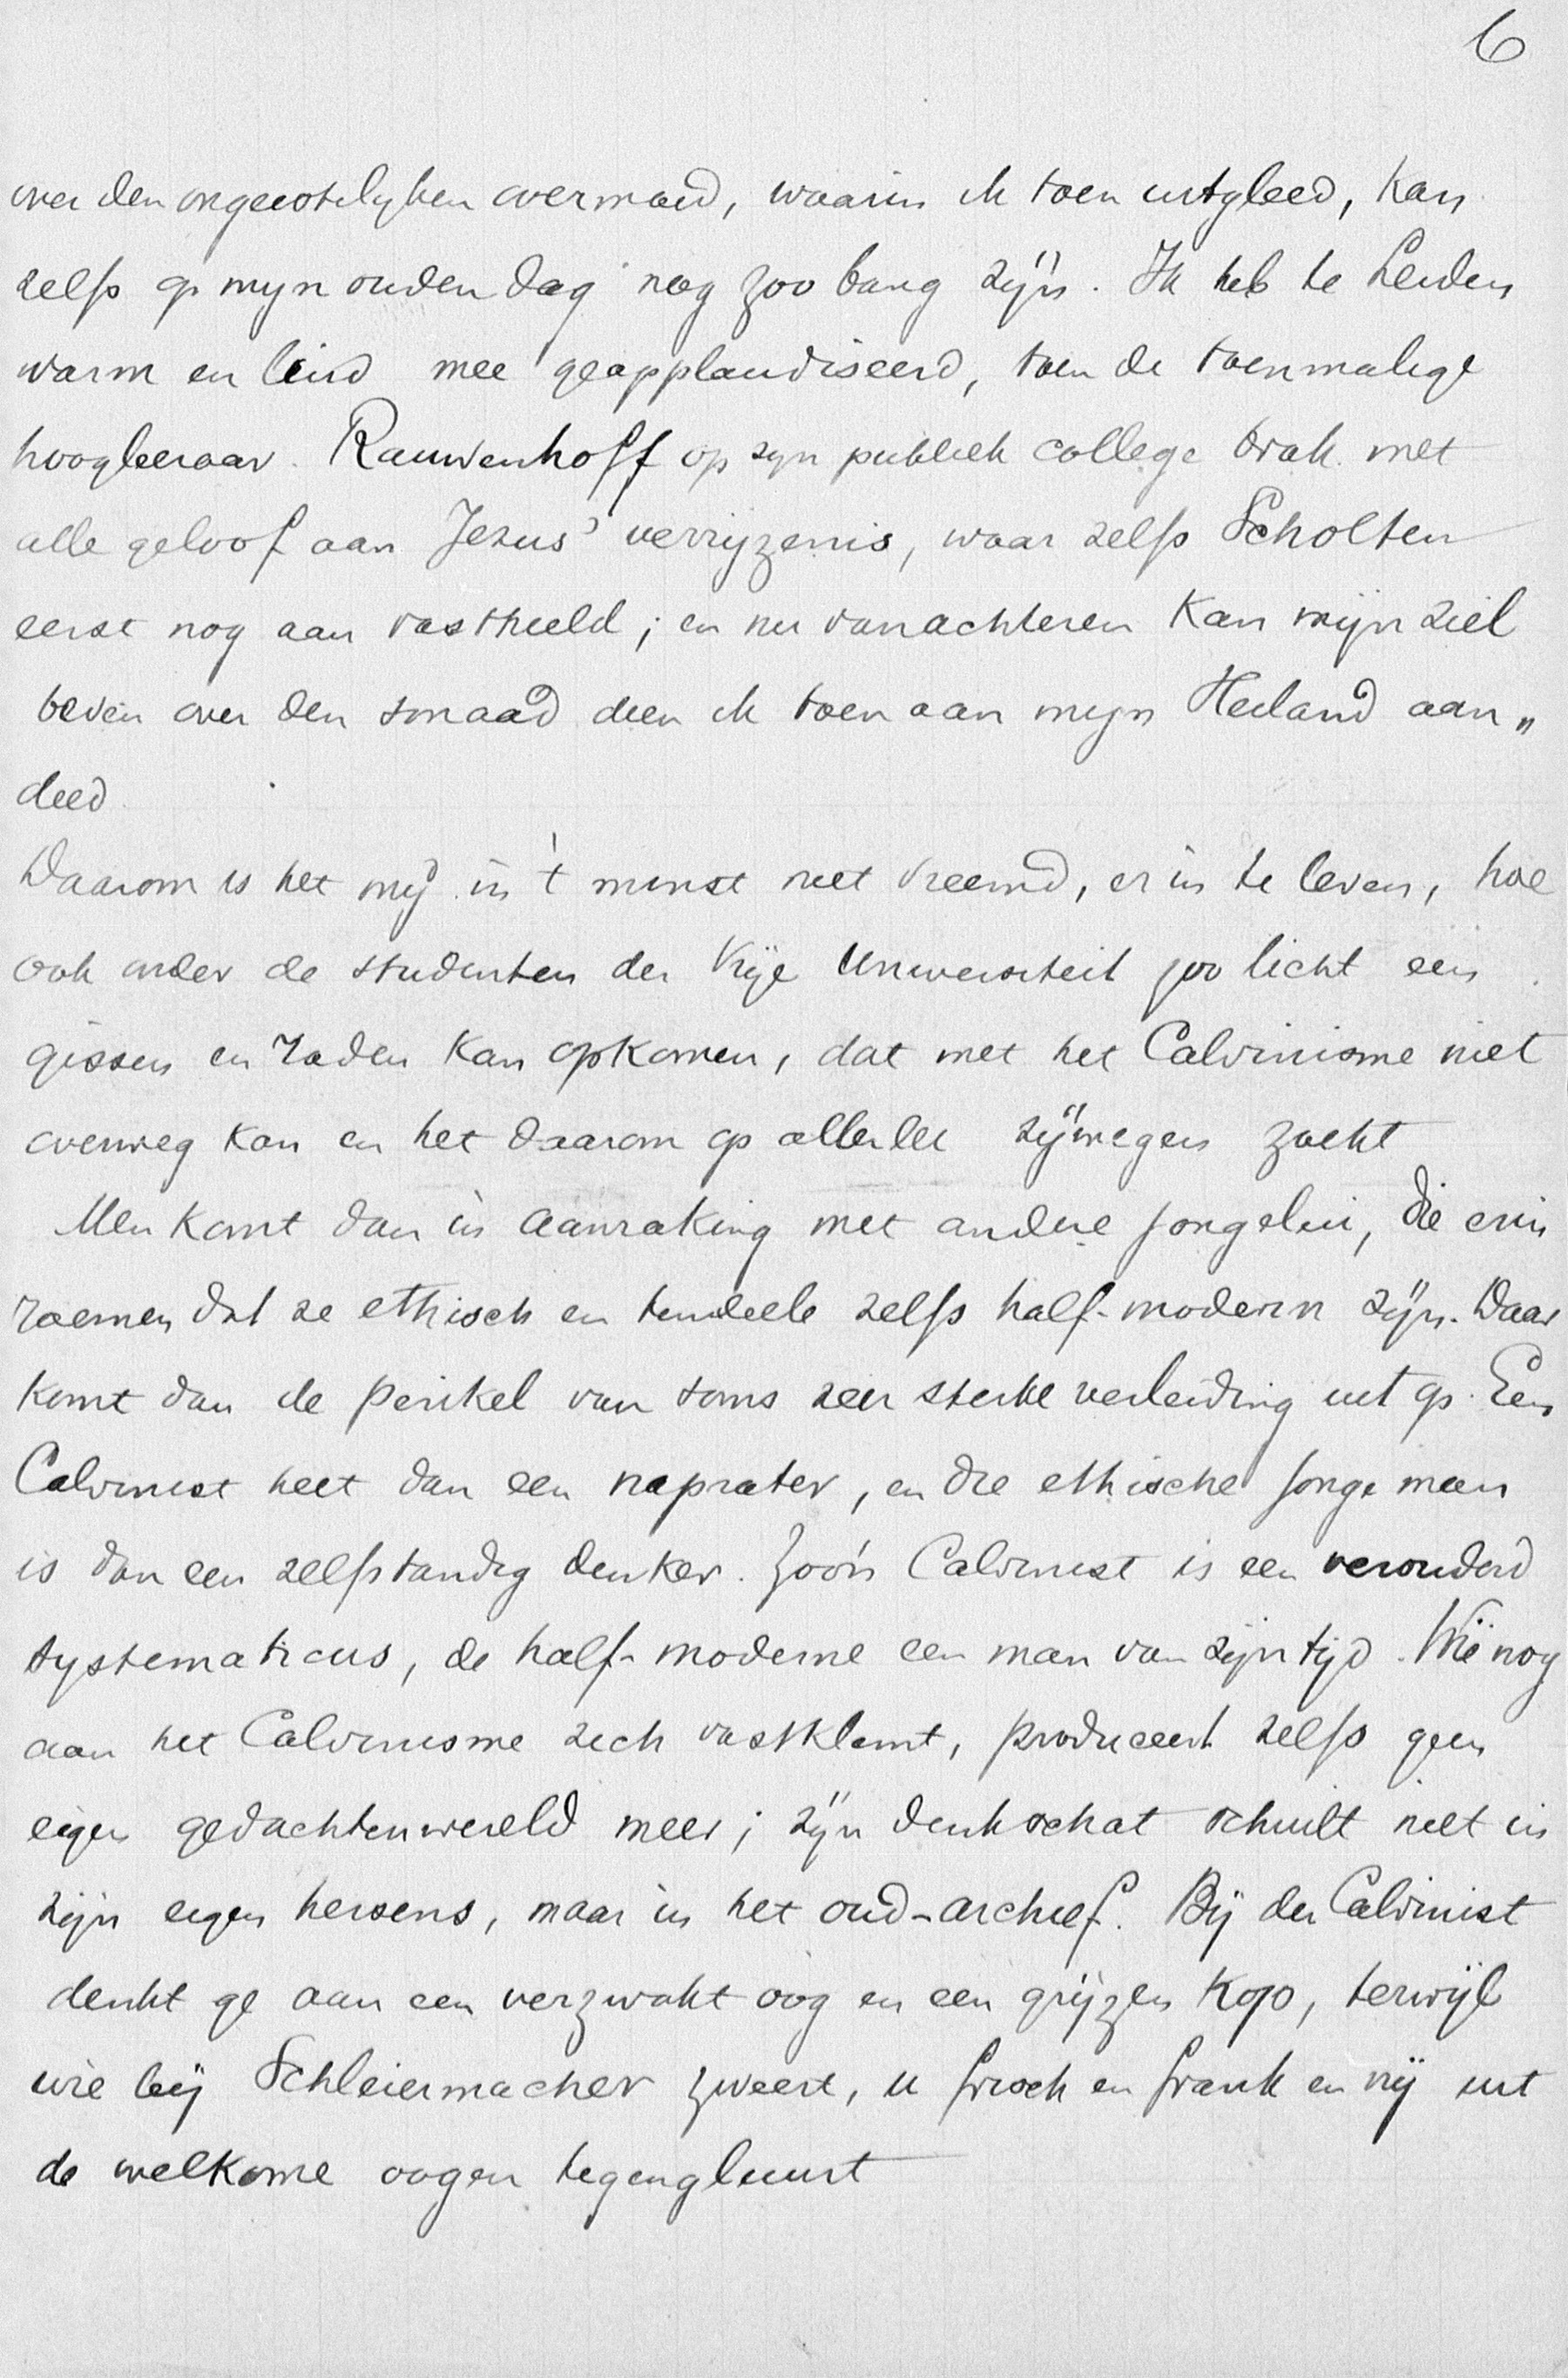 6
over den ongeestelyken overmoed, waarin ik toen uitgleed, kan
zelfs op myn ouden dag nog zoo bang zijn. Ik heb te Leiden
warm en luid mee geapplaudiseerd, toen de toenmalige
hoogleeraar Rauwenhoff op zyn publiek college brak met
alle geloof aan Jezus' verrijzenis, waar zelfs Scholten
eerst nog aan vasthield; en nu vanachteren kan mijn ziel
beven over den smaad dien ik toen aan mijn Heiland aan„
deed
Daarom is het mij in 't minst niet vreemd, er in te leven, hoe
ook onder de studenten der Vrije Universiteit zoo licht een
gissen en raden kan opkomen, dat met het Calvinisme niet
overweg kan en het daarom op allerlei zijwegen zoekt
Men komt dan in aanraking met andere jongelui, die erin
roemen dat ze ethisch en tendeele zelfs half-modern zijn. Daar
komt dan de perikel van soms zeer sterke verleiding uit op. Een
Calvinist heet dan een naprater, en die ethische jonge man
is dan een zelfstandig denker. Zoo'n Calvinist is een verouderd
systematicus, de half-moderne een man van zijn tijd. Wie nog
aan het Calvinisme zich vastklemt, produceert zelfs geen
eigen gedachtenwereld meer; zijn denkschat schuilt niet in
zijn eigen hersens, maar in het oud-archief. Bij den Calvinist
denkt ge aan een verzwakt oog en een grijzen kop, terwijl
wie bij Schleiermacher zweert, u frisch en frank en vrij uit
de welkome oogen tegengluurt